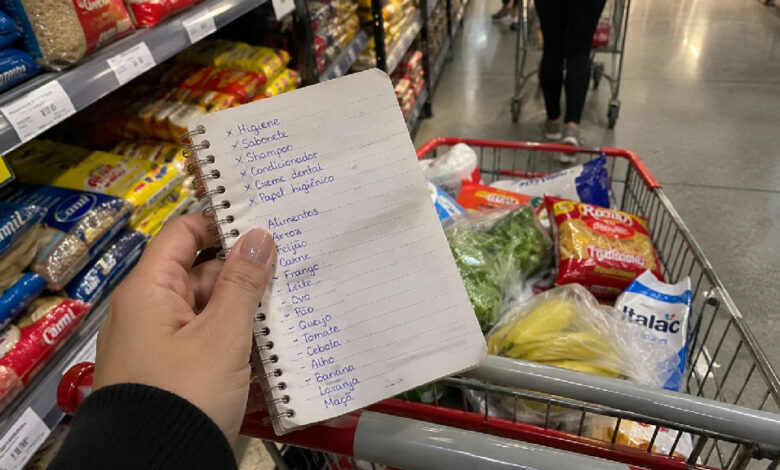 × Higiene
× Sabonete
× Shampoo
× Condicionador
× Creme dental
× Papel higiênico
Alimentos
Arroz
Feijão
- Carne
- Frango
- Leite
- Ovo
- Pão
- Queijo
- Tomate
- Cebola
- Alho
- Banana
Laranja
Maçã
Camil
Camil
Italac